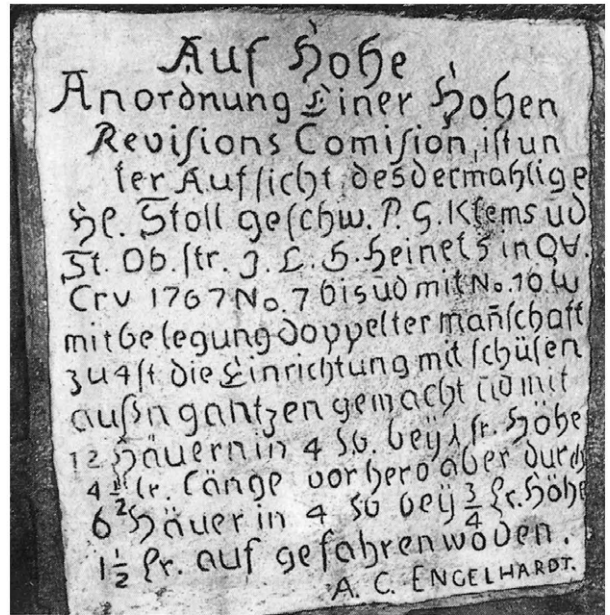 Auf Hohe
Anordnung Einer Hohen
Reviſions Comiſion, iſt un
ter Aufſicht desdermahlige
HE. Stoll geſchw. P. G. Klems ūd
St. Ob. ſtr. J. L. H. Heinels in QV.
Crv 1767 No. 7 bis ūd mit No. 10 W
mit Belegung doppelter mañſchaft
zu 4 ſt die Einrichtung mit ſchüſen
außn gantzen gemacht ūd mit
12 Häuern in 4 So. beÿ 1 lr. Höhe
4 1/2 lr. Länge vorhero aber durch
6 Häuer in 4 So beÿ 3/4 lr. Höhe
1 1/2 lr. auf gefahren woden.
A. C. ENGELHARDT.